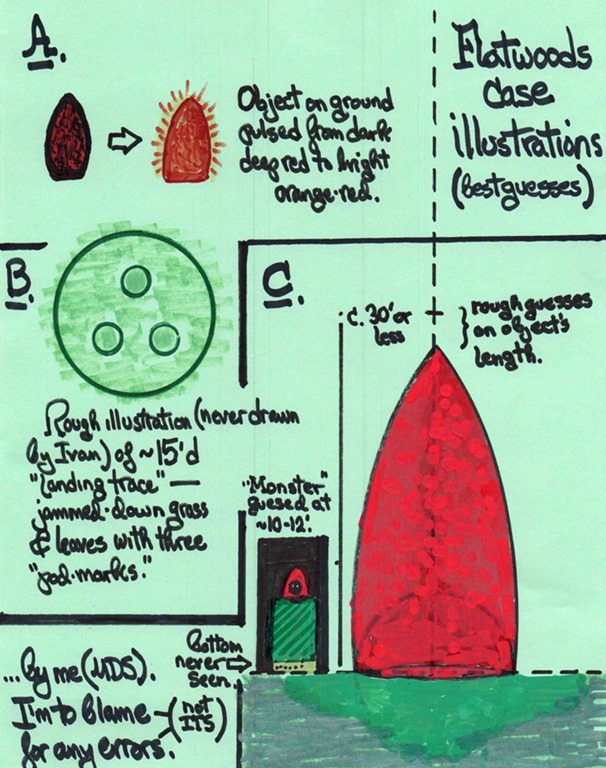 A.
Object on ground
pulsed from dark
deep red to bright
orange-red.
Flatwoods
Case
illustrations
(best guesses)
B.
Rough illustration (never drawn
by Ivan) of ~15'd
"landing trace" —
jammed-down grass
& leaves with three
"pod-marks."
C.
c. 30' or
less
rough guesses
on object's
length.
"Monster"
guesed at
~10-12'.
bottom
never
seen.
...by me (MDS).
I'm to blame
(not
ITS)
for any errors.